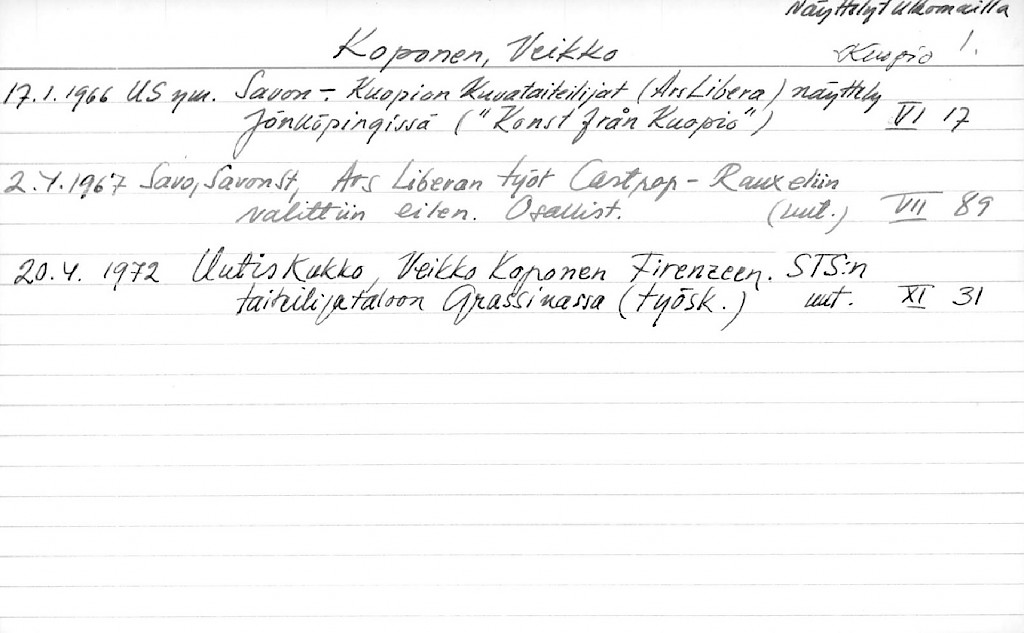 Näyttelyt ulkomailla
Koponen, Veikko Kuopio 1.
17.1.1966 US ym. Savon-Kuopion Kuvataiteilijat (Ars Libera) näyttely
Jönköpingissä ("Konst från Kuopio") VI 17
2.4.1967 Savo, SavonSt, Ars Liberan työt Castrop-Rauxeliin
valittiin eilen. Osallist. (uut.) VII 89
20.4. 1972 Uutis Kukko, Veikko Koponen Firenzeen. STS:n
taiteilijataloon Grassinassa (työsk.) uut. XI 31